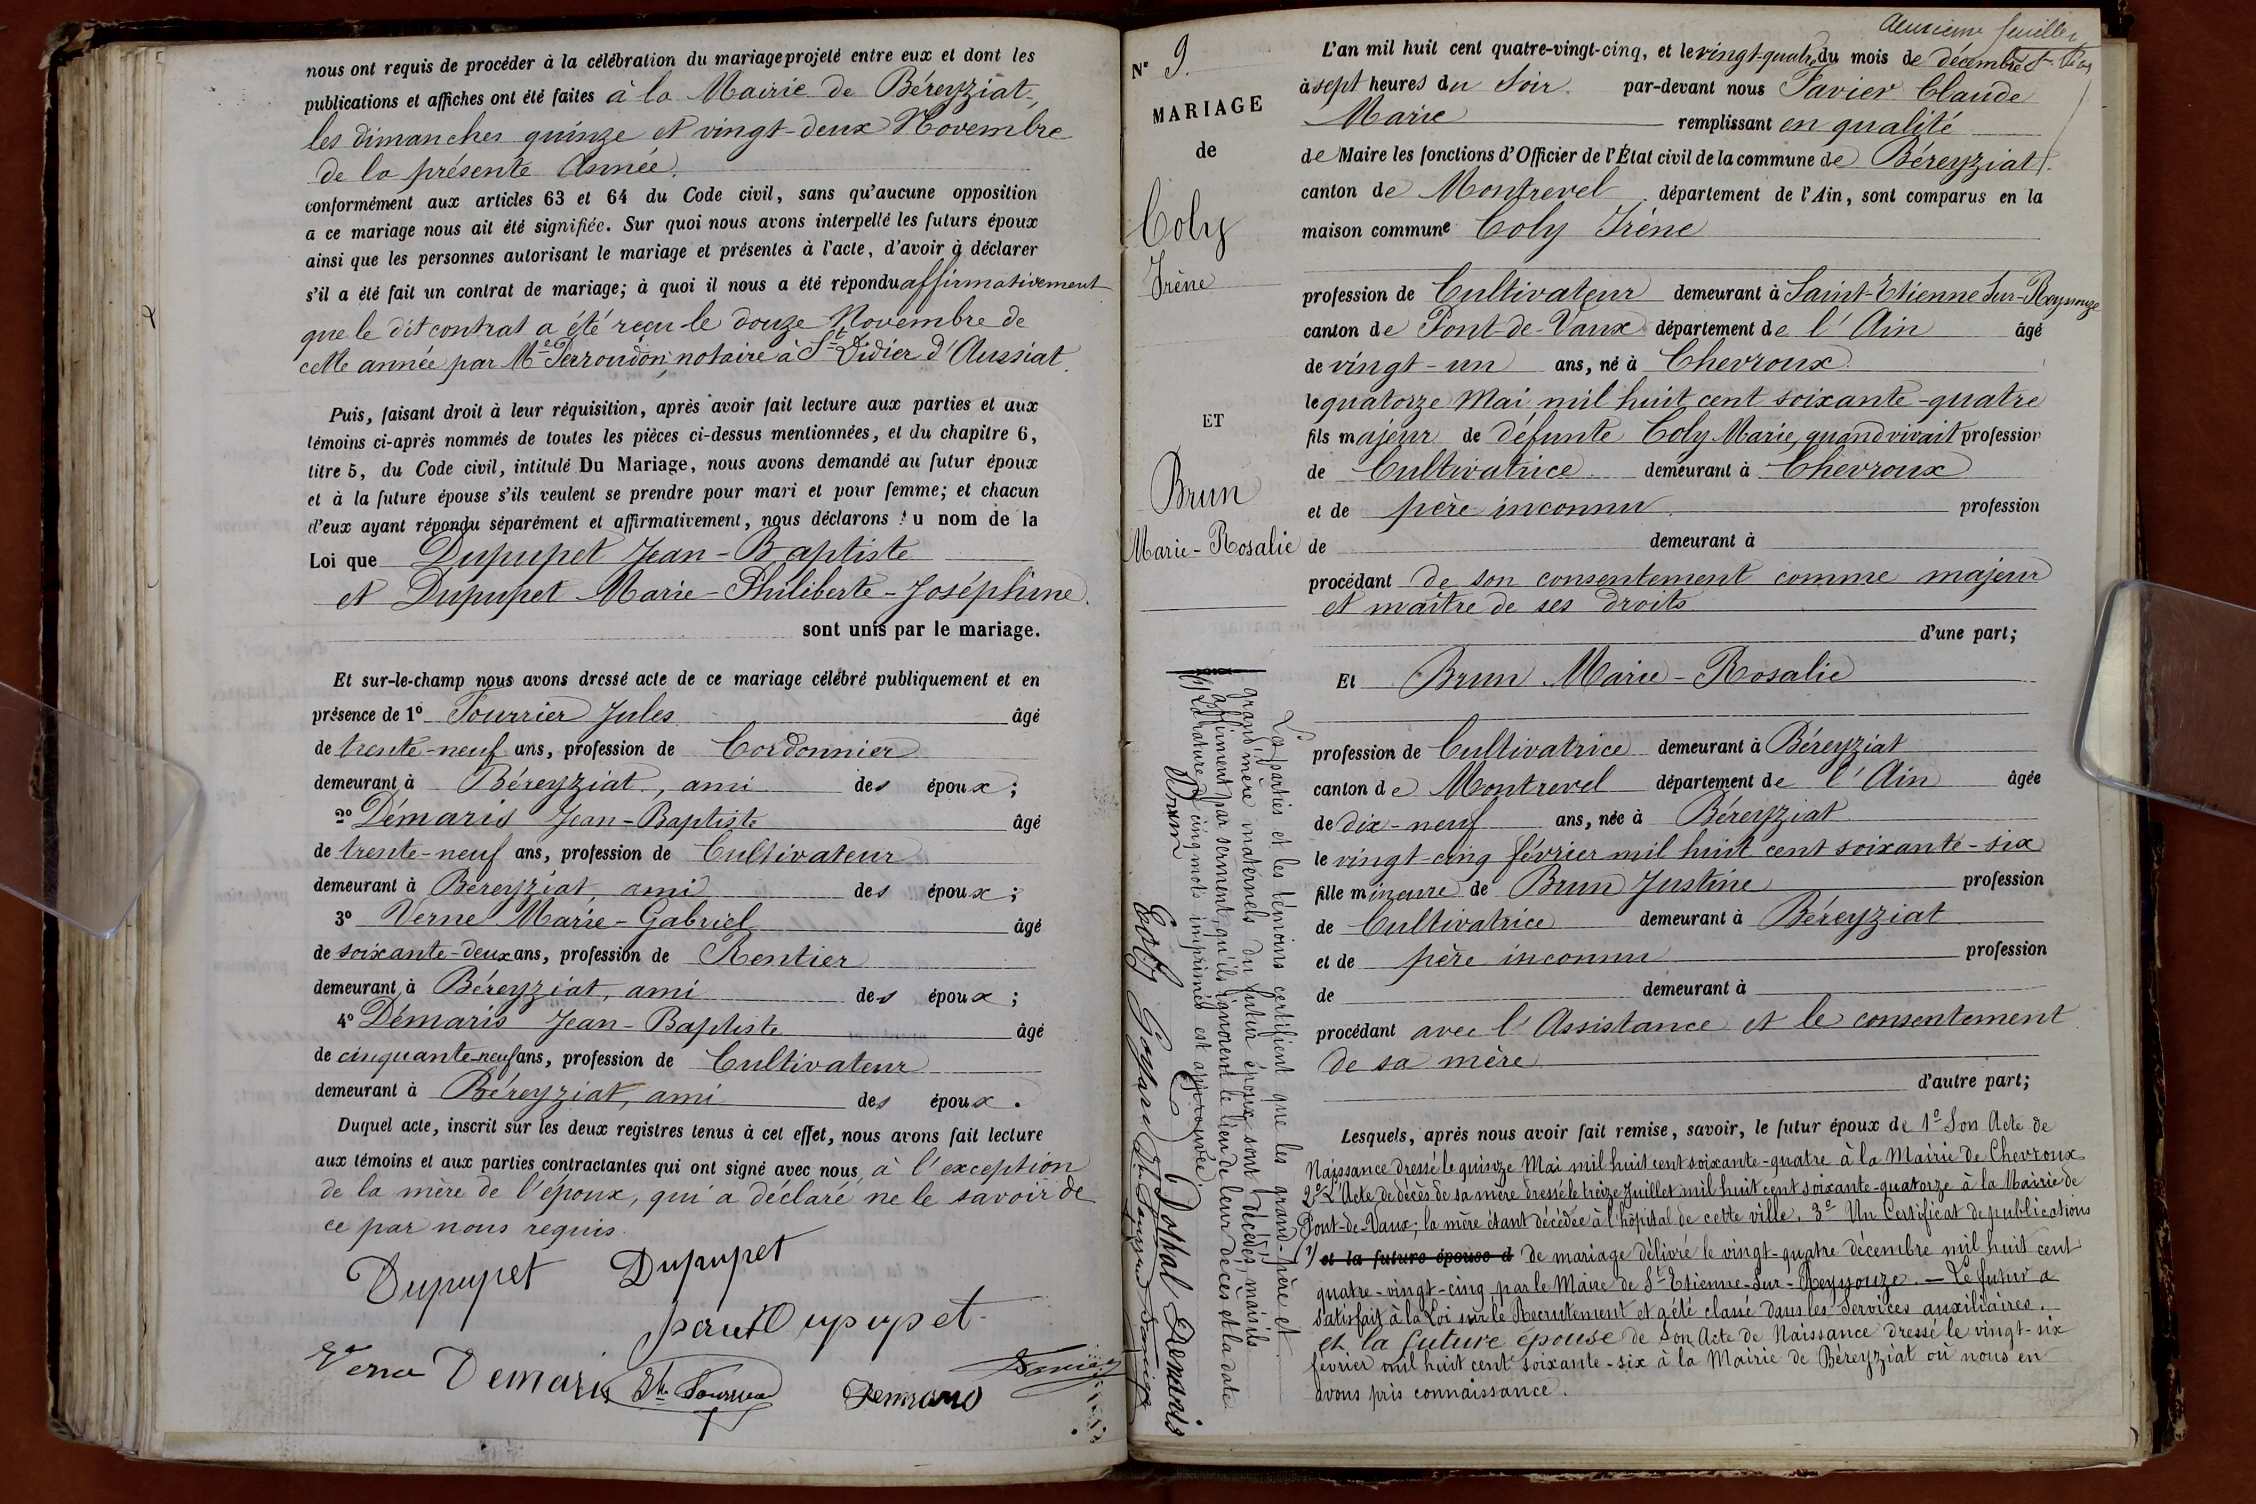 nous ont requis de procéder à la célébration du mariage projeté entre eux et dont les
publications et affiches ont été faites à la Mairie de Béreyziat,
les dimanches quinze et vingt-deux Novembre
de la présente Année.
conformément aux articles 63 et 64 du Code civil, sans qu'aucune opposition
a ce mariage nous ait été signifiée. Sur quoi nous avons interpellé les futurs époux
ainsi que les personnes autorisant le mariage et présentes à l'acte, d'avoir à déclarer
s'il a été fait un contrat de mariage; à quoi il nous a été répondu affirmativement
que le dit contrat a été reçu le douze Novembre de
cette année par Me Perroudon, notaire à St Didier d'Aussiat.
Puis, faisant droit à leur réquisition, après avoir fait lecture aux parties et aux
témoins ci-après nommés de toutes les pièces ci-dessus mentionnées, et du chapitre 6,
titre 5, du Code civil, intitulé Du Mariage, nous avons demandé au futur époux
et à la future épouse s'ils veulent se prendre pour mari et pour femme; et chacun
d'eux ayant répondu séparément et affirmativement, nous déclarons au nom de la
Loi que Dupupet Jean-Baptiste
et Dupupet Marie-Philiberte-Joséphine.
sont unis par le mariage.
Et sur-le-champ nous avons dressé acte de ce mariage célébré publiquement et en
présence de 1º Fourrier Jules âgé
de trente-neuf ans, profession de Cordonnier
demeurant à Béreyziat, ami des époux;
2º Démaris Jean-Baptiste âgé
de trente-neuf ans, profession de Cultivateur
demeurant à Béreyziat, ami des époux;
3º Verne Marie-Gabriel âgé
de soixante-deux ans, profession de Rentier
demeurant à Béreyziat, ami des époux;
4º Démaris Jean-Baptiste âgé
de cinquante-neuf ans, profession de Cultivateur
demeurant à Béreyziat, ami des époux.
Duquel acte, inscrit sur les deux registres tenus à cet effet, nous avons fait lecture
aux témoins et aux parties contractantes qui ont signé avec nous, à l'exception
de la mère de l'époux, qui a déclaré ne le savoir de
ce par nous requis.
Dupupet Dupupet
Dupupet
Verne Demaris
Nº 9.
MARIAGE
de
Coly
Irène
ET
Brun
Marie-Rosalie
deuxième feuille
L'an mil huit cent quatre-vingt-cinq, et le vingt-quatre du mois de décembre
à sept heures du soir. par-devant nous Favier Claude
Marie remplissant en qualité
de Maire les fonctions d'Officier de l'État civil de la commune de Béreyziat.
canton de Montrevel département de l'Ain, sont comparus en la
maison commune Coly Irène
profession de Cultivateur demeurant à Saint-Etienne-Sur-Reyssouze
canton de Pont-de-Vaux département de l'Ain âgé
de vingt-un ans, né à Chevroux
le quatorze Mai mil huit cent soixante-quatre
fils majeur de défunte Coly Marie, quand vivait profession
de Cultivatrice demeurant à Chevroux
et de père inconnu profession
de demeurant à
procédant de son consentement comme majeur
et maître de ses droits
d'une part;
Et Brun Marie-Rosalie
profession de Cultivatrice demeurant à Béreyziat
canton de Montrevel département de l'Ain âgée
de dix-neuf ans, née à Béreyziat
le vingt-cinq février mil huit cent soixante-six
fille mineure de Brun Justine profession
de Cultivatrice demeurant à Béreyziat
et de père inconnu profession
de demeurant à
procédant avec l'Assistance et le consentement
de sa mère
d'autre part;
Lesquels, après nous avoir fait remise, savoir, le futur époux de 1º Son Acte de
Naissance dressé le quinze Mai mil huit cent soixante-quatre à la Mairie de Chevroux
2º L'Acte de décès de sa mère dressé le treize Juillet mil huit cent soixante-quatorze à la Mairie de
Pont-de-Vaux; la mère étant décédée à l'hôpital de cette ville. 3º Un Certificat de publications
(1) et la future épouse d de mariage délivré le vingt-quatre décembre mil huit cent
quatre-vingt-cinq par le Maire de St Etienne-Sur-Reyssouze. — Le futur a
satisfait à la Loi sur le Recrutement et a été classé dans les Services auxiliaires.
et la future épouse de son Acte de Naissance dressé le vingt-six
février mil huit cent soixante-six à la Mairie de Béreyziat où nous en
avons pris connaissance.
Les parties et les témoins certifient que les grand-père et
grand'mère maternels du futur époux sont décédés, mais ils
affirment par serment, qu'ils ignorent le lieu de leur décès et la date
(1) La rature de cinq mots imprimés est approuvée
Brun Dostal Demaris
Coly Goyard